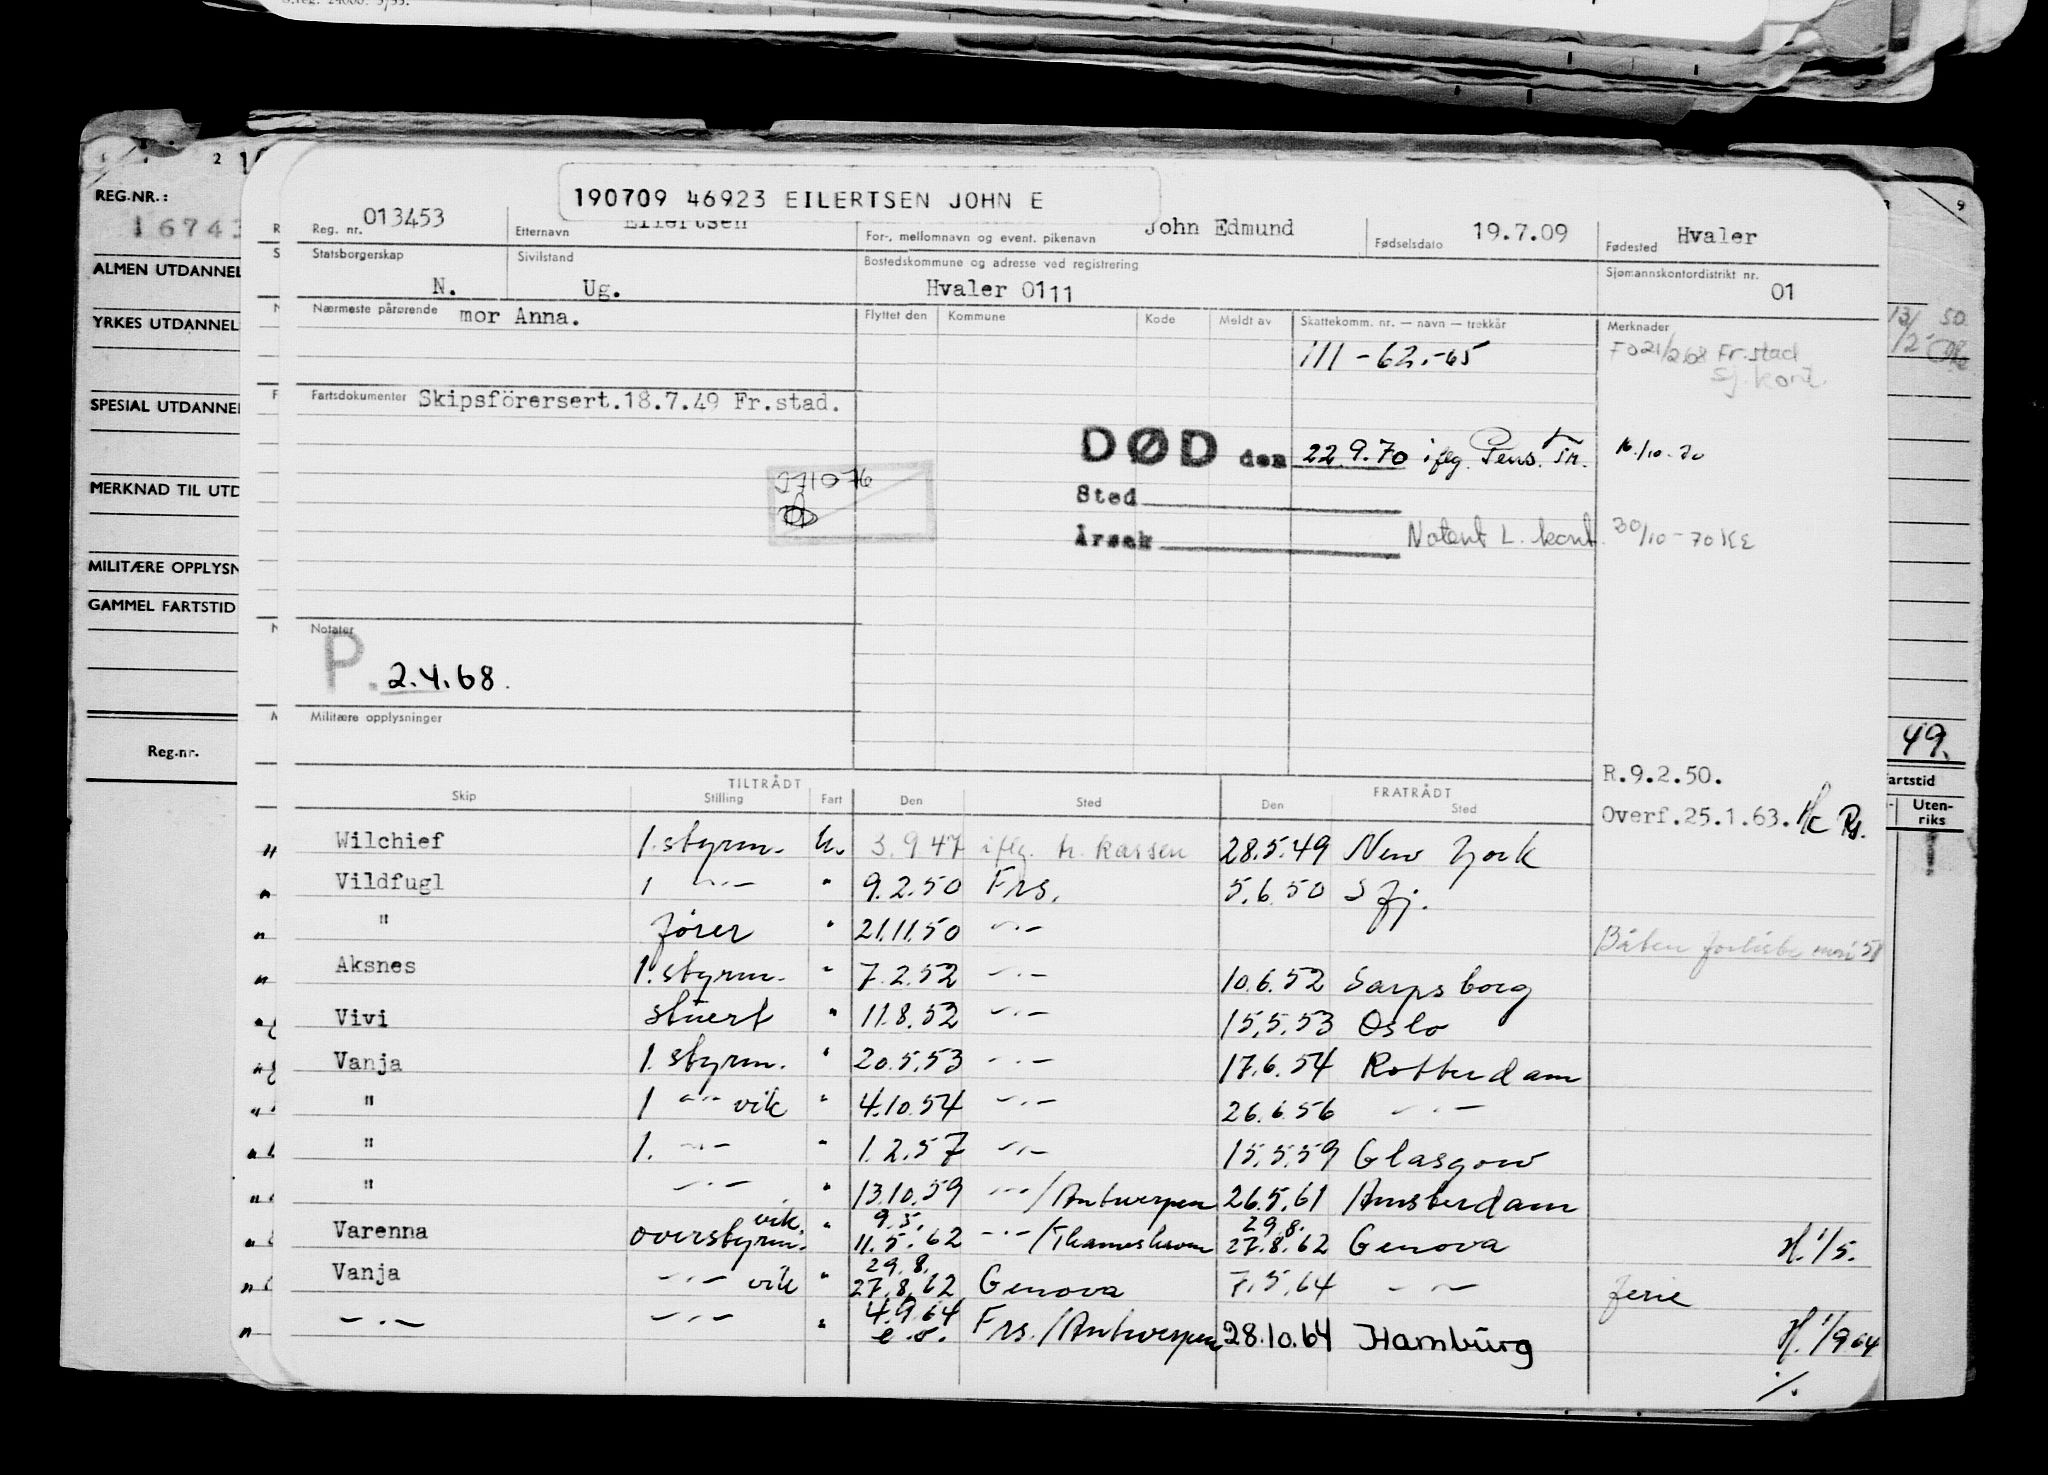 REG.NR.:
16743
ALMEN UTDANNEL
YRKES UTDANNEL
SPESIAL UTDANNEL
MERKNAD TIL UTD
MILITÆRE OPPLYSN
GAMMEL FARTSTID
Reg.nr.
190709 46923 EILERTSEN JOHN E
Reg. nr. 013453 Etternavn Eilertsen For-, mellomnavn og event. pikenavn John Edmund Fødselsdato 19.7.09 Fødested Hvaler
Statsborgerskap N. Sivilstand Ug. Bostedskommune og adresse ved registrering Hvaler 0111 Sjømannskontordistrikt nr. 01
Nærmeste pårørende mor Anna. Flyttet den Kommune Kode Meldt av Skattekomm. nr. — navn — trekkår Merknader
111 - 62.-65 FD 21/2 68 Fr.stad
Sj. kont.
Fartsdokumenter Skipsförersert.18.7.49 Fr.stad.
DØD den 22.9.70 iflg. Pens. Tr. 16/10.70
271076
Sted
Årsak Notert L. kont. 30/10-70 KE
Notater
P. 2.4.68.
Militære opplysninger
R.9.2.50.
Overf.25.1.63.
49.
Fartstid
Uten-
riks
TILTRÅDT FRATRÅDT
Skip Stilling Fart Den Sted Den Sted
Wilchief 1. styrm. U. 3.9 47 iflg. tr. kassen 28.5.49 New York
Vildfugl 1 -"- " 9.2.50 Frs. 5.6.50 Sfj.
" fører " 21.11.50 -"- Båten forliste
Aksnes 1. styrm. " 7.2.52 -"- 10.6.52 Sarpsborg
Vivi stuert " 11.8.52 -"- 15.5.53 Oslo
Vanja 1. styrm. " 20.5.53 -"- 17.6.54 Rotterdam
" 1 -"- vik " 4.10.54 -"- 26.6.56 -"-
" 1. -"- " 1.2.57 -"- 15.5.59 Glasgow
" -"- " 13.10.59 -"-/Antwerpen 26.5.61 Amsterdam
vik. 9.5. 29.8.
Varenna overstyrm. " 11.5.62 -"-/Thameshaven 27.8.62 Genova H. 1/5.
29.8.
Vanja -"- vik " 27.8.62 Genova 7.5.64 -"- ferie
4.9.64
-"- -"- " e.o. Frs./Antwerpen 28.10.64 Hamburg H. 1/9 64
./.